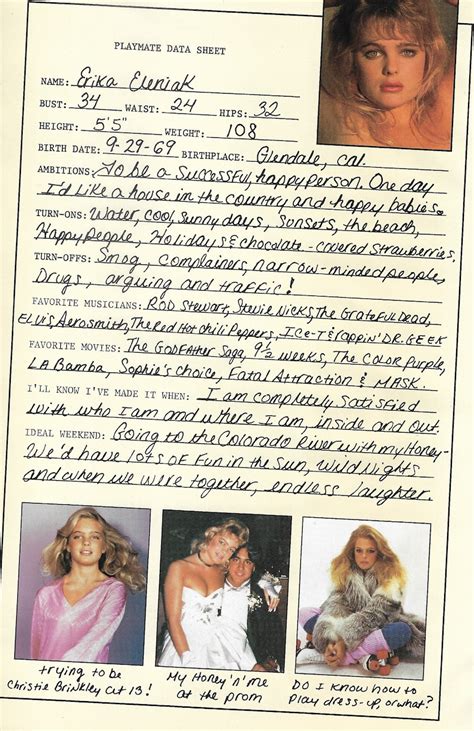 PLAYMATE DATA SHEET
NAME: Erika Eleniak
BUST: 34 WAIST: 24 HIPS: 32
HEIGHT: 5'5" WEIGHT: 108
BIRTH DATE: 9-29-69 BIRTHPLACE: Glendale, Cal.
AMBITIONS: To be a successful, happy person. One day
I'd like a house in the country and happy babies.
TURN-ONS: Water, cool, sunny days, sunsets, the beach,
Happy people, Holidays & chocolate-covered strawberries.
TURN-OFFS: Smog, complainers, narrow-minded people,
Drugs, arguing and traffic!
FAVORITE MUSICIANS: Rod Stewart, Stevie Nicks, The Grateful Dead,
Elvis, Aerosmith, The Red Hot Chili Peppers, Ice-T & rappin' DR. GEEK
FAVORITE MOVIES: The Godfather Saga, 9½ weeks, The Color Purple,
La Bamba, Sophie's Choice, Fatal Attraction & MASK.
I'LL KNOW I'VE MADE IT WHEN: I am completely satisfied
with who I am and where I am, inside and out.
IDEAL WEEKEND: Going to the Colorado River with my Honey-
We'd have lots of fun in the sun, wild nights
and when we were together, endless laughter.
trying to be
Christie Brinkley at 13!
My Honey 'n' me
at the prom
Do I know how to
play dress-up, or what?